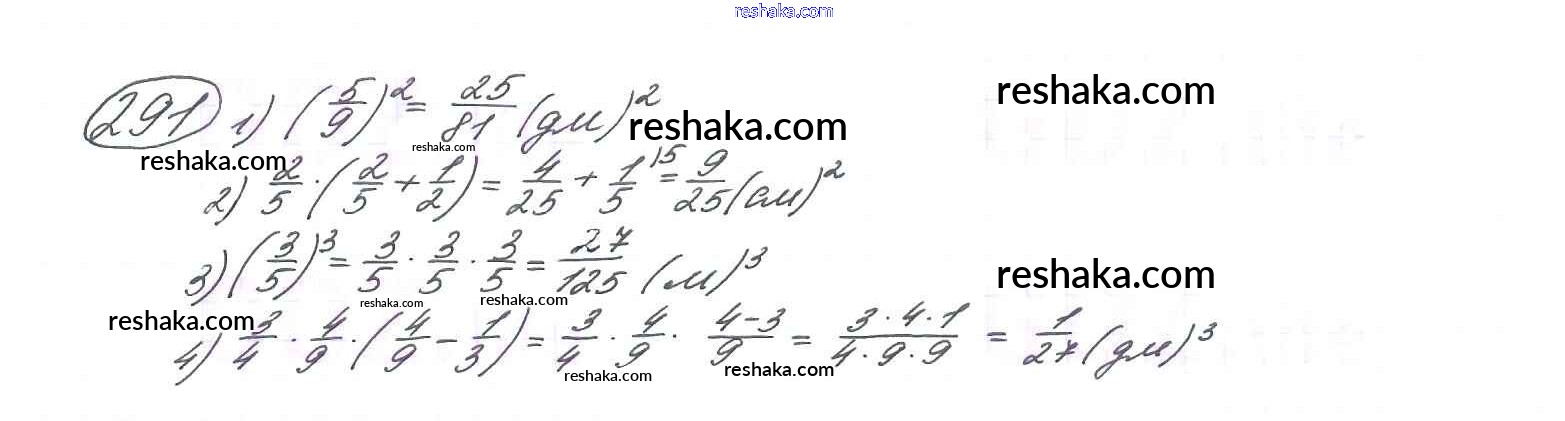 reshaka.com
291 1) (5/9)^2 = 25/81 (дм)^2 reshaka.com
reshaka.com reshaka.com reshaka.com
2) 2/5 · (2/5 + 1/2) = 4/25 + 1/5 ^15 = 9/25 (см)^2
3) (3/5)^3 = 3/5 · 3/5 · 3/5 = 27/125 (м)^3 reshaka.com
reshaka.com reshaka.com reshaka.com
4) 3/4 · 4/9 · (4/9 - 1/3) = 3/4 · 4/9 · 4-3/9 = 3·4·1/4·9·9 = 1/27 (дм)^3
reshaka.com reshaka.com